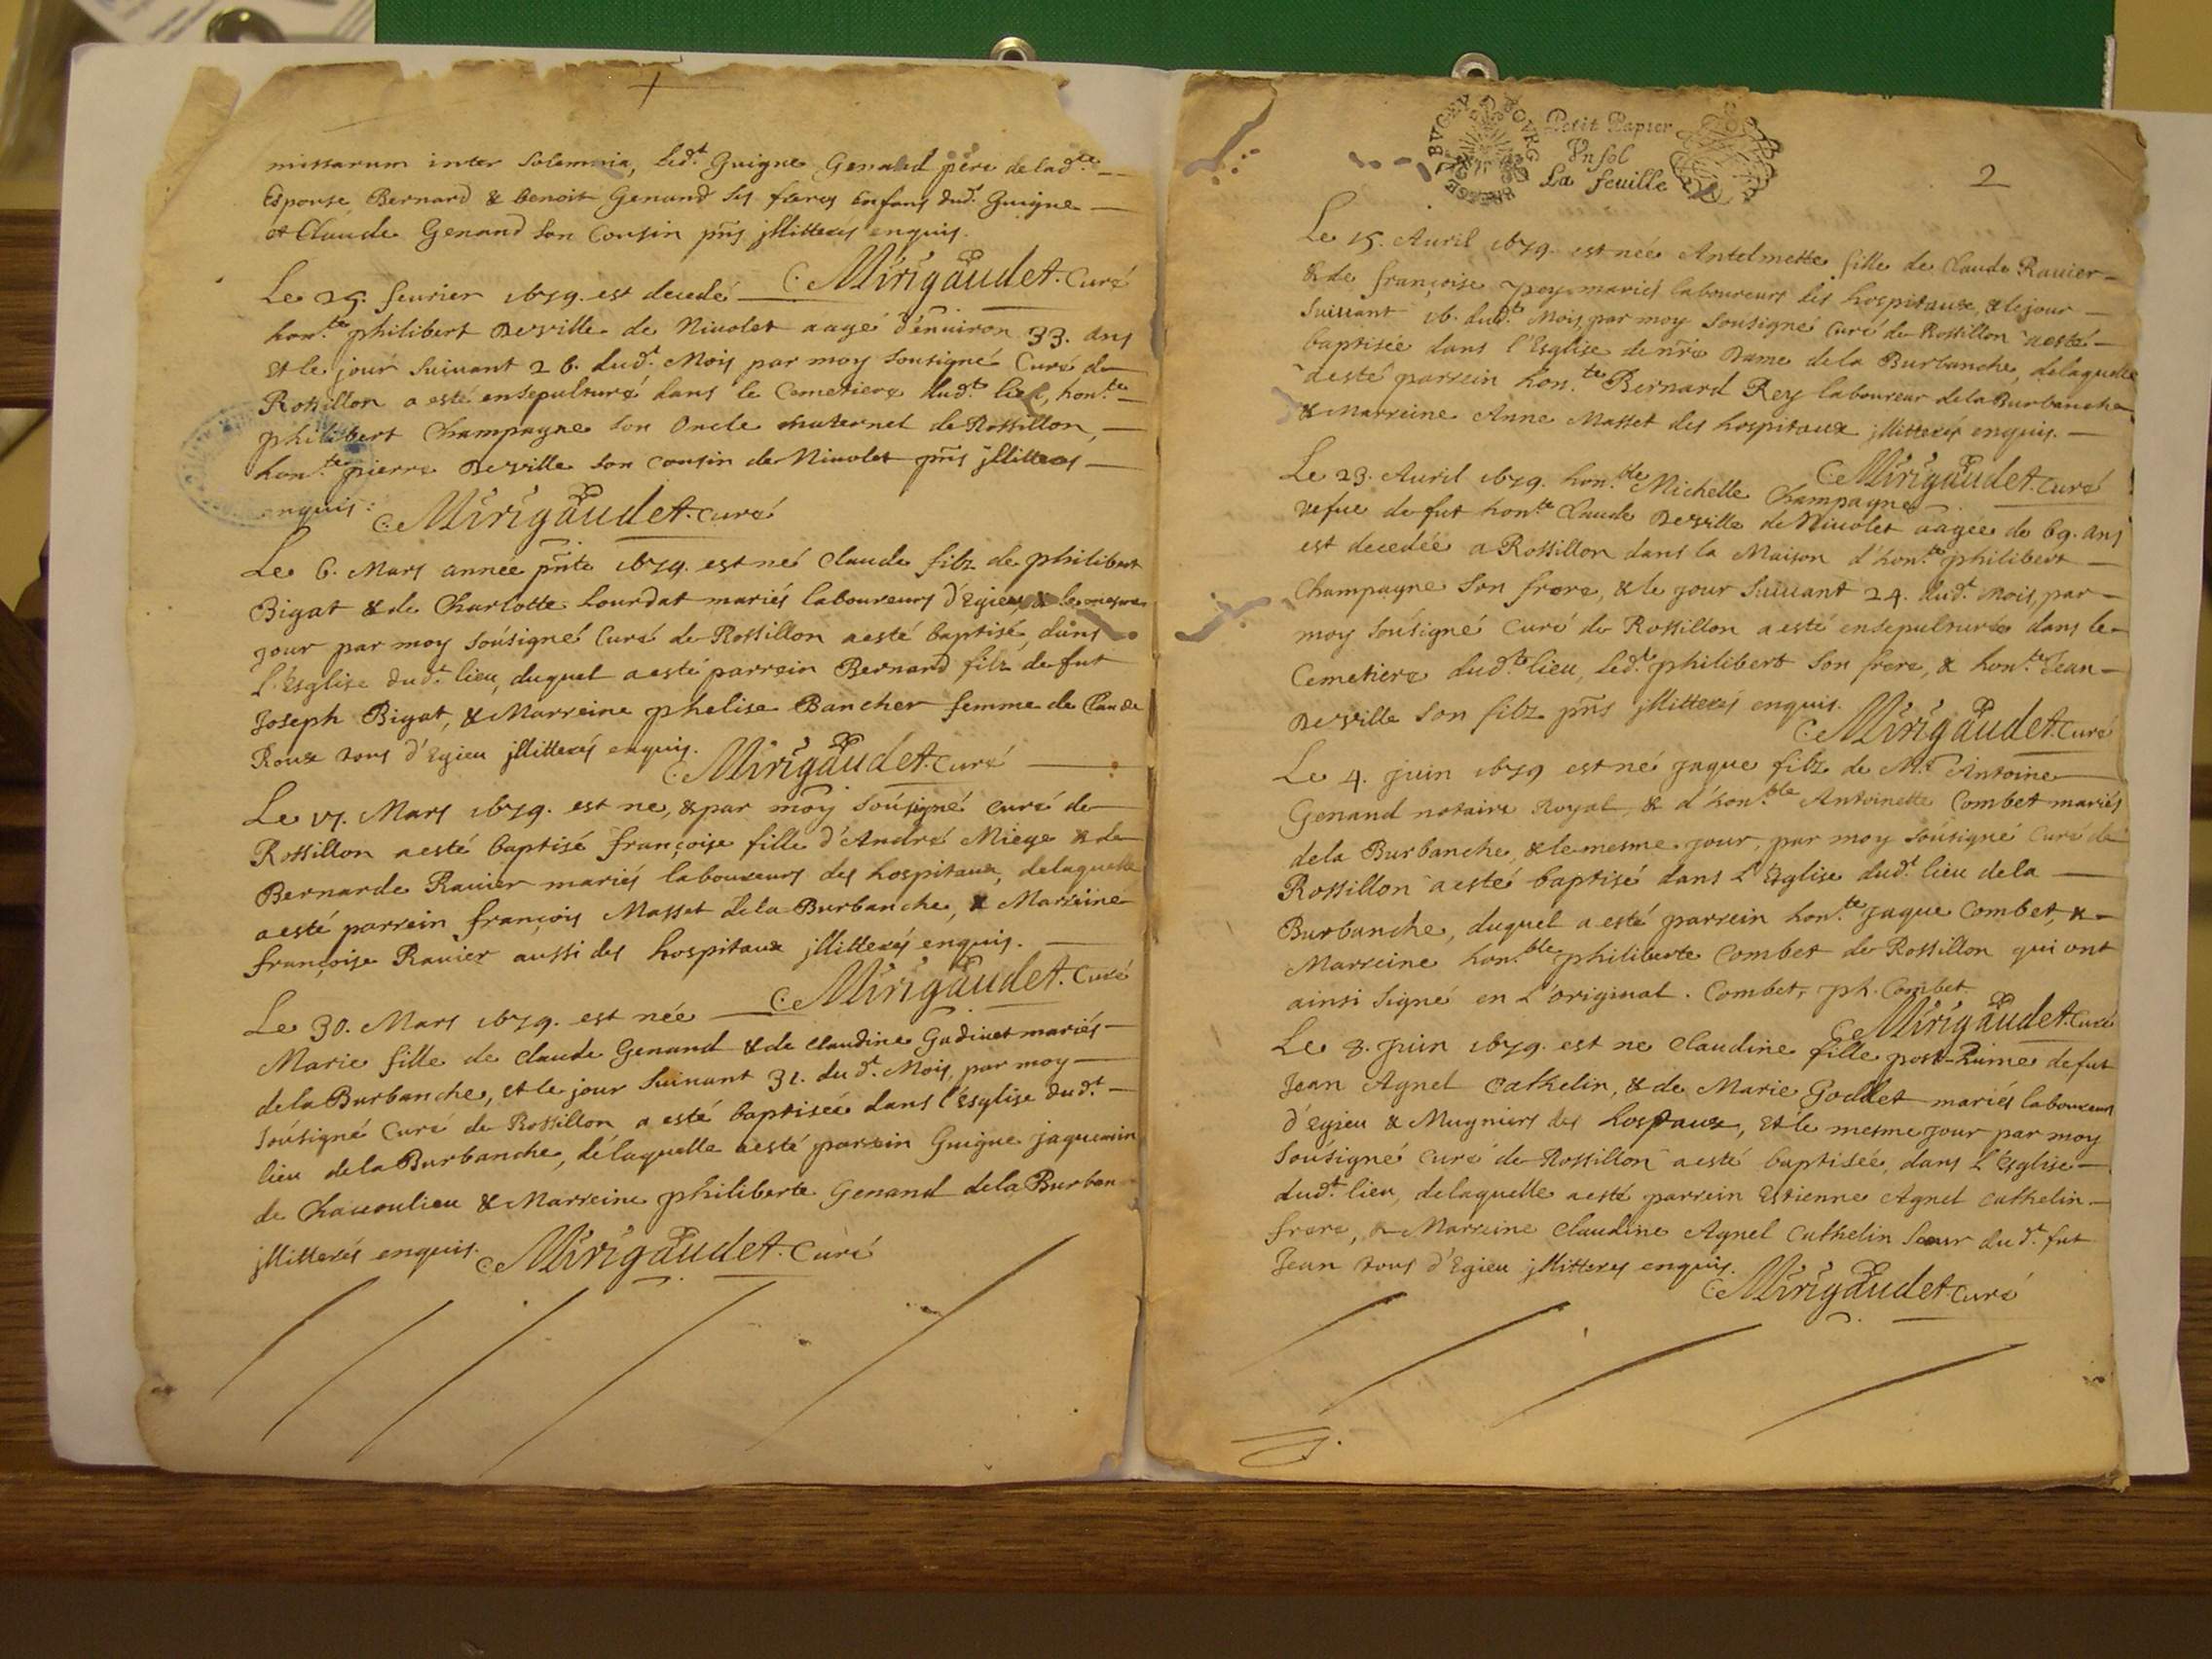 missarum inter Solemnia, led.t Guigne Genand père de lad.te
Espouse, Bernard & benoit Genand ses freres enfans dud.t Guigne
et Claude Genand son Cousin pn̄s jllitterés enquis.
C. Mirigaudet. Curé
Le 25. feurier 1679. est decedé
hon.te philibert Deville de Niuolet aagé d'enuiron 33. ans
et le jour suiuant 26. dud.t Mois par moy sousigné Curé de
Rossillon a esté ensepulturé dans le Cemetiere dud.t lieu, hon.te
philibert Champagne son Oncle maternel de Rossillon,
hon.te pierre Deville son cousin de Niuolet pn̄s jllitterés
enquis: C. Mirigaudet. curé
Le 6. Mars année pn̄te 1679. est né Claude filz de philibert
Bigat & de Charlotte Lourdat mariés laboureurs d'Egieu, & le mesme
jour par moy soúsigné Curé de Rossillon a esté baptisé, dans
L'Esglise dud.t lieu, duquel a esté parrein Bernard filz de fut
Joseph Bigat, & Marreine phelise Bancher femme de Claude
Roux tous d'Egieu jllitterés enquis. C. Mirigaudet. Curé
Le 17. Mars 1679. est ne, & par moy soúsigné curé de
Rossillon a esté baptisé françoise fille d'André Miege & de
Bernarde Rauier mariés laboureurs des hospitaux, delaquelle
a esté parrein françois Masset dela Burbanche, & Marreine
françoise Rauier aussi des hospitaux jllitterés enquis.
C. Mirigaudet. Curé
Le 30. Mars 1679. est née
Marie fille de Claude Genand & de Claudine Gadinet mariés
dela Burbanche, et le jour suiuant 31. dud.t Mois, par moy
soúsigné Curé de Rossillon a esté baptiseé dans l'Esglise dud.t
lieu dela Burbanche, delaquelle a esté parrein Guigue jaquemin
de Chauoulieu & Marreine philiberte Genand dela Burban
jllitterés enquis. C. Mirigaudet. Curé
BVGEY
Petit Papier
Vn sol
La feuille
2
Le 15. Auril 1679. est née Antelmette fille de Claude Rauier
& de françoise ypey mariés laboureurs des hospitaux, & le jour
suiuant 16. dud.t Mois, par moy sousigné Curé de Rossillon a esté
baptisée dans l'Esglise de nr̄e Dame dela Burbanche, delaquelle
a esté parrein hon.te Bernard Rey laboureur dela Burbanche
& Marreine Anne Masset des hospitaux jllitterés enquis.
C. Mirigaudet. curé
Le 23. Auril 1679. hon.ble Michelle Champagne
vefue de fut hon.te Claude Deville de Niuolet aagée de 69. ans
est decedée a Rossillon dans la Maison d'hon.te philibert
Champagne son frere, & le jour suiuant 24. dud.t Mois, par
moy soúsigné Curé de Rossillon a esté ensepulturée dans le
Cemetiere dud.t lieu, led.t philibert son frere, & hon.te Jean
Deville son filz pn̄s jllitterés enquis.
C. Mirigaudet. Curé
Le 4. Juin 1679 est né jaque filz de M.e Antoine
Genand notaire Royal, & d'hon.ble Antoinette Combet mariés
dela Burbanche, & le mesme jour, par moy soúsigné Curé de
Rossillon a esté baptisé dans L'Esglise dud.t lieu dela
Burbanche, duquel a esté parrein hon.te jaque Combet, &
Marreine hon.ble philiberte Combet de Rossillon qui ont
ainsi signé en L'original. Combet, ph. Combet.
C. Mirigaudet. Curé
Le 8. Juin 1679. est ne Claudine fille post-hume de fut
Jean Agnel Cathelin, & de Marie Goddet mariés laboureurs
d'Egieu & Mugniers des hospaux, et le mesme jour par moy
soúsigné curé de Rossillon a esté baptisée, dans L'Esglise
dud.t lieu, delaquelle a esté parrein Estienne Agnel Cathelin
frere, & Marreine Claudine Agnel Cathelin soeur dud.t fut
Jean tous d'Egieu jllitterés enquis.
C. Mirigaudet. curé